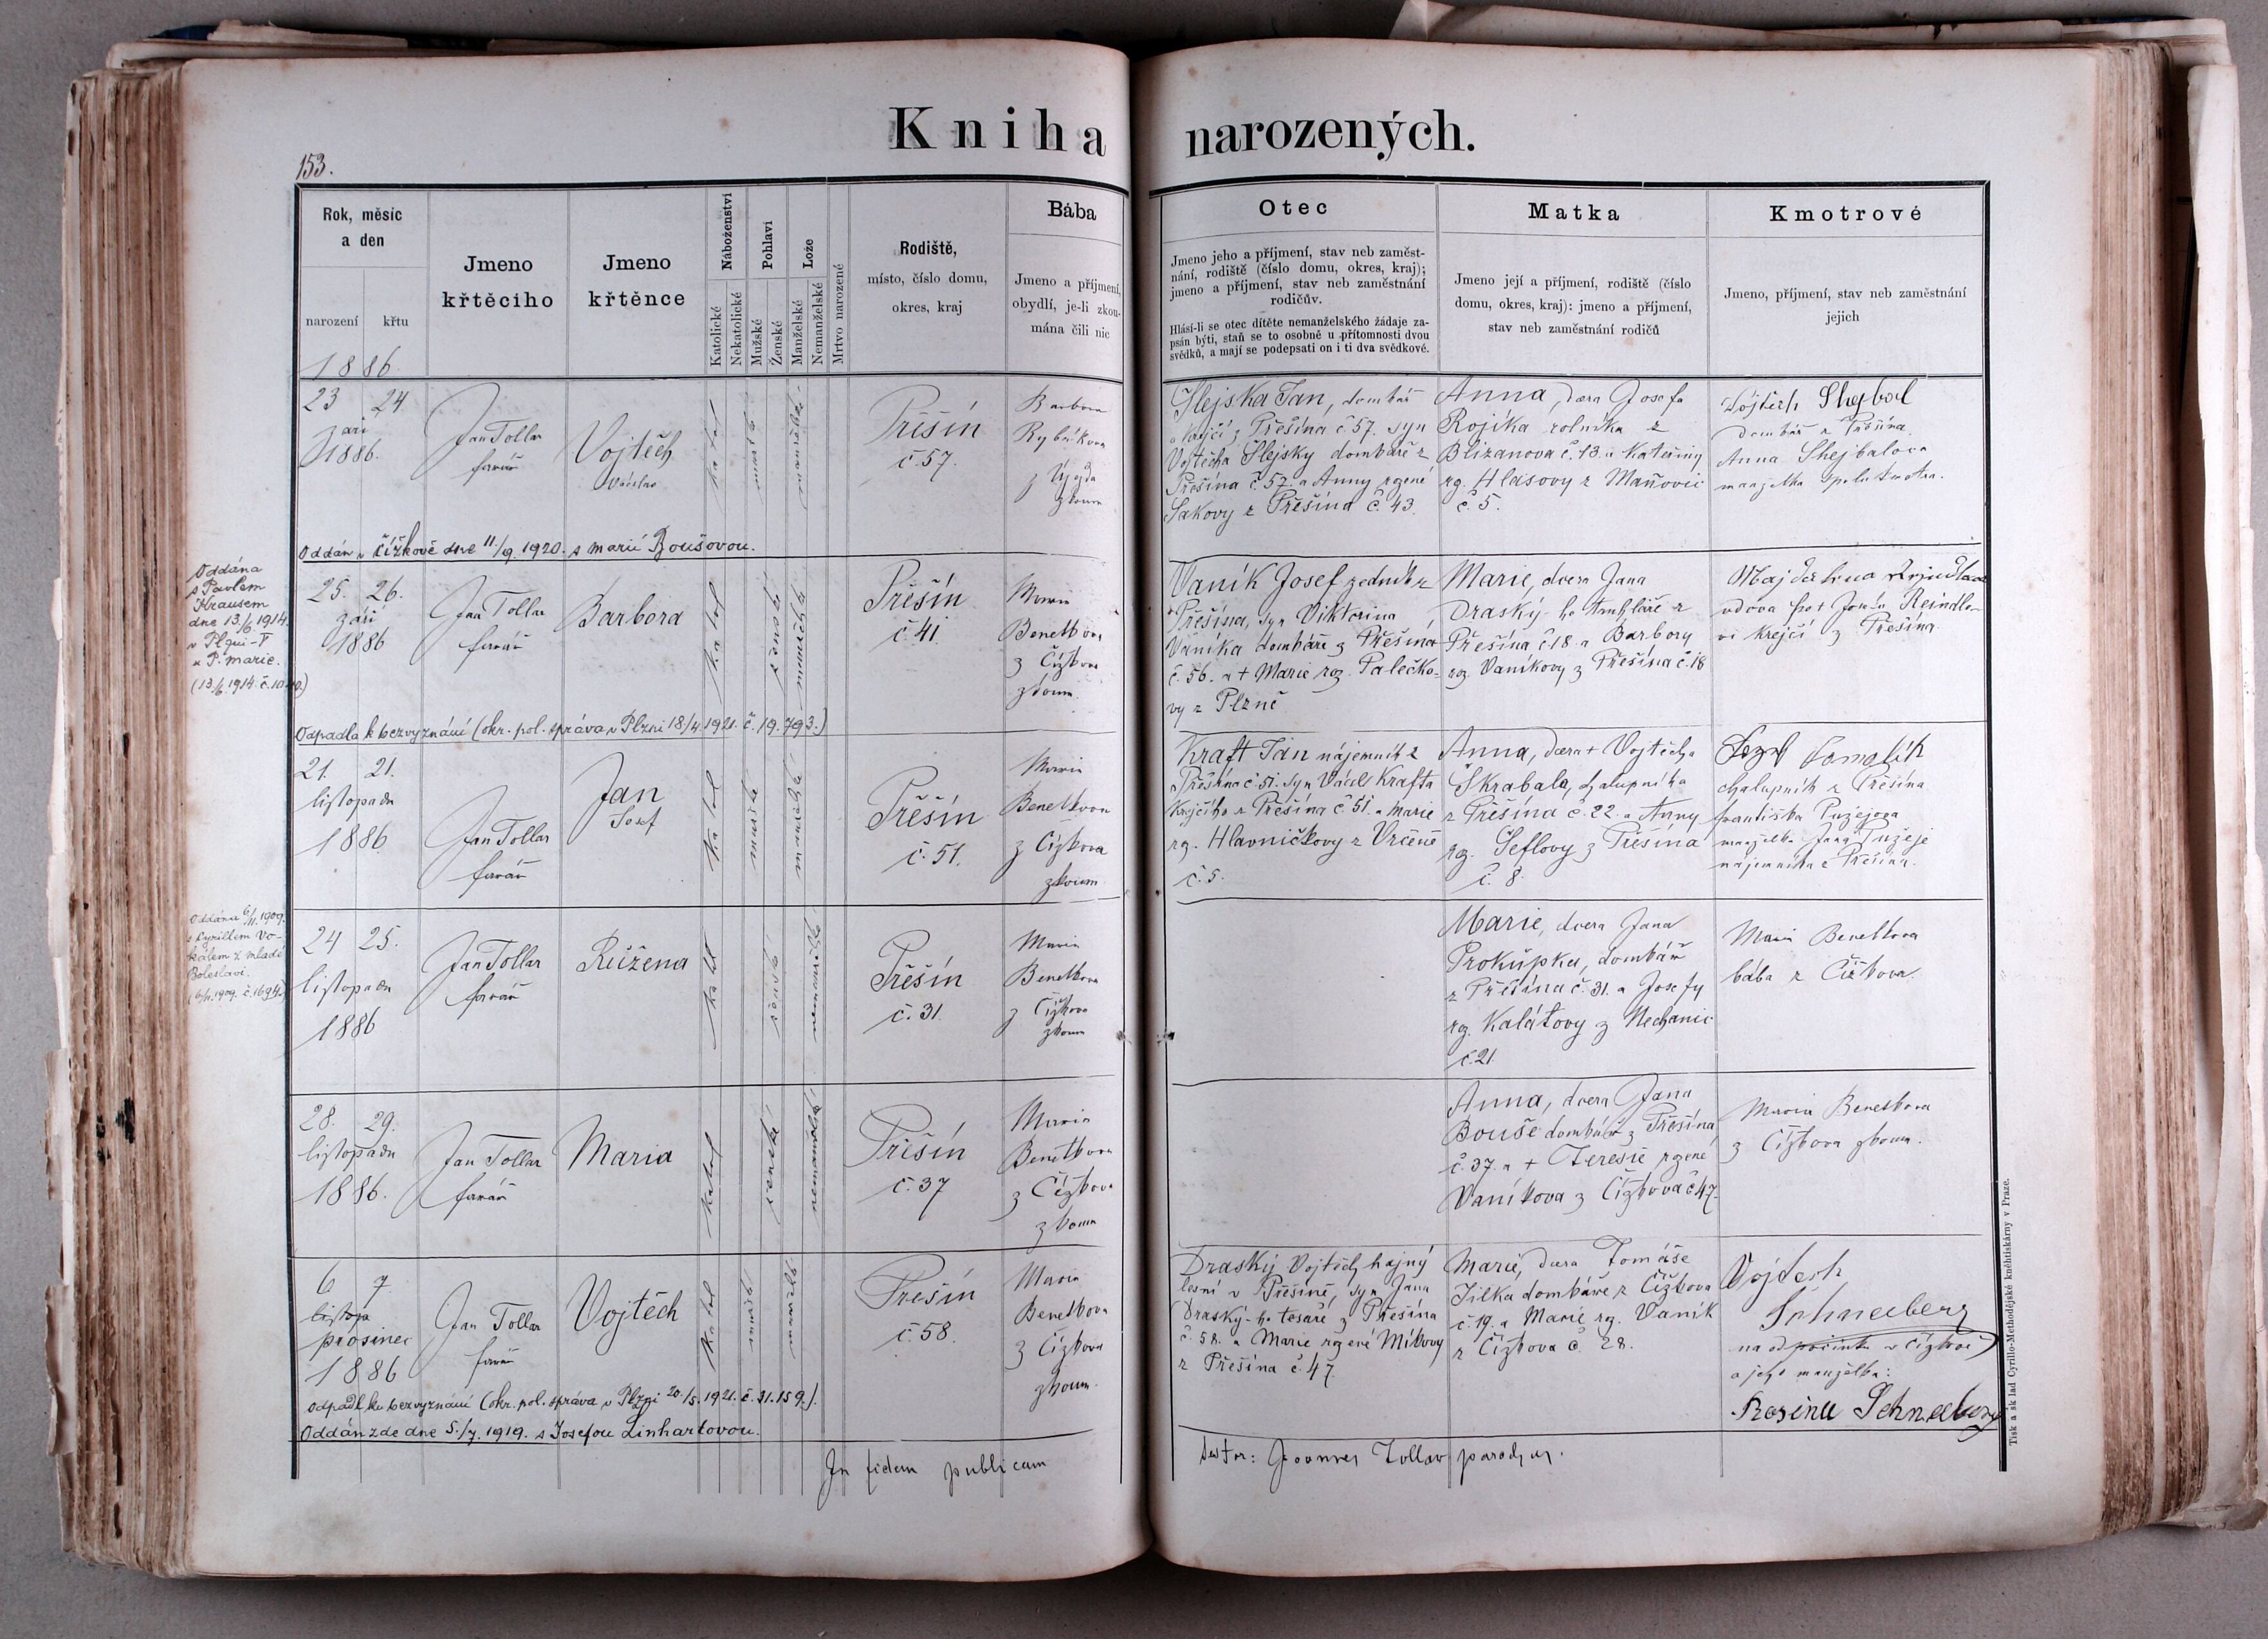 Kniha narozených.
153.
Rok, měsíc
a den
narození
křtu
1886.
Jmeno
křtěciho
Jmeno
křtěnce
Náboženství
Katolické
Nekatolické
Pohlaví
Mužské
Ženské
Lože
Manželské
Nemanželské
Mrtvo narozené
Rodiště,
místo, číslo domu,
okres, kraj
Bába
Jmeno a příjmení,
obydlí, je-li zkou-
mána čili nic
Otec
Jmeno jeho a příjmení, stav neb zaměst-
nání, rodiště (číslo domu, okres, kraj);
jmeno a příjmení, stav neb zaměstnání
rodičův.
Hlásí-li se otec dítěte nemanželského žádaje za-
psán býti, staň se to osobně u přítomnosti dvou
svědků, a mají se podepsati on i ti dva svědkové.
Matka
Jmeno její a příjmení, rodiště (číslo
domu, okres, kraj): jmeno a příjmení,
stav neb zaměstnání rodičů
Kmotrové
Jmeno, příjmení, stav neb zaměstnání
jejich
23 24
září
1886.
Jan Tollar
farář
Vojtěch
Václav
katol
mužské
manželské
Přešín
č. 57.
Barbora
Rybníkova
z Újezda
zkoum
Šlejska Jan, domkář
a krejčí z Přešína č. 57. syn
Vojtěcha Šlejsky domkáře z
Přešína č. 57. a Anny rgené
Šakovy z Přešína č. 43.
Anna, dcera Josefa
Rojíka rolníka z
Blizanova č. 13. a Kateřiny
rg. Hlasovy z Maňovic
č. 5.
Vojtěch Shejbal
domkář z Přešína
Anna Shejbalova
manželka spolukmotra.
Oddán v Čížkově dne 11./9. 1920. s Marií Boušovou.
Oddána
s Pavlem
Krausem
dne 13./6. 1914.
v Plzni-
u P. Marie.
25. 26.
září
1886
Jan Tollar
farář
Barbora
katol
ženské
manželské
Přešín
č. 41
Maria
Benetkova
z Čížkova
zkoum.
Vaník Josef zedník z
Přešína, syn Viktorina
Vaníka domkáře z Přešína
č. 56. a + Marie roz. Palečko-
vy z Plzně
Marie, dcera Jana
Draský-ho truhláře z
Přešína č. 18 a Barbory
roz. Vaníkovy z Přešína č. 18
vdova po + Josefu Reindlo-
vi krejčí z Přešína.
Odpadla k bezvyznání (okr. pol. správa v Plzni 18/4. 1921. č. 19.793.)
21. 21.
listopadu
1886.
Jan Tollar
farář
Jan
Josef
katol
mužské
manželské
Přešín
č. 51.
Maria
Benetkova
z Čížkova
zkoum
Kraft Jan nájemník z
Přešína č. 51. syn Václ. Krafta
krejčího z Přešína č. 51. a Marie
rg. Hlavničkovy z Vrčeně
č. 5.
Anna, dcera + Vojtěcha
Škrabala, chalupníka
z Přešína č. 22. a Anny
rg. Šeflovy z Přešína
č. 8.
chalupník z Přešína
Františka Pužejova
manželka Jana Pužeje
nájemníka z Přešína.
Oddána 6/11. 1909.
s Cyrillem Vo-
kálem z Mladé
Boleslavi.
24 25.
listopadu
1886
Jan Tollar
farář
Růžena
katol
ženské
nemanželské
Přešín
č. 31.
Maria
Benetkova
z Čížkova
zkoum
Marie, dcera Jana
Prokůpka, domkář
z Přešína č. 31. a Josefy
rg. Kalátovy z Nechanic
č. 21.
Maria Benetkova
bába z Čížkova.
28. 29.
listopadu
1886.
Jan Tollar
farář
Maria
katol
ženské
nemanželské
Přešín
č. 37
Maria
Benetkova
z Čížkova
zkoum
Anna, dcera Jana
Bouše domkář z Přešína
č. 37. a + Terezie rgené
Vaníkova z Čížkova č. 47.
Maria Benetkova
z Čížkova zkoum.
6 7
listopa
prosinec
1886
Jan Tollar
farář
Vojtěch
katol
mužské
manželské
Přešín
č. 58.
Maria
Benetkova
z Čížkova
zkoum.
Draský Vojtěch hajný
lesní v Přešíně, syn Jana
Draský-ho tesaře z Přešína
č. 58. a Marie rgené Míkovy
z Přešína č. 47.
Marie, dcera Tomáše
Jílka domkáře z Čížkova
č. 19. a Marie rg. Vaník
z Čížkova č. 28.
Vojtech
Schneeberg
na odpočinku v Čížkově
a jeho manželka:
Rosina Schneeberg
Odpadl ku bezvyznání (okr. pol. správa v Plzni 20./5. 1921. č. 31.159.).
Oddán zde dne 5./7. 1919. s Josefou Linhartovou.
In fidem publicam
testor: Joannes Tollar parochus.
Tisk a sklad Cyrillo-Methodějské knihtiskárny v Praze.